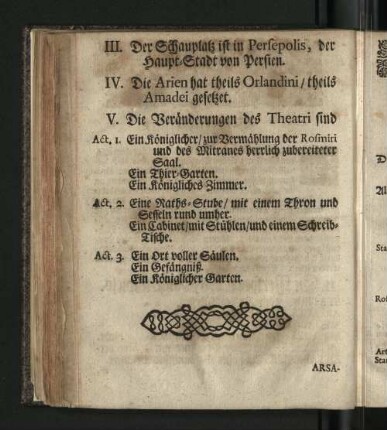 III. Der Schauplatz ist in Persepolis, der
Haupt-Stadt von Persien.
IV. Die Arien hat theils Orlandini / theils
Amadei gesetzet.
V. Die Veränderungen des Theatri sind
Act. 1. Ein Königlicher / zur Vermählung der Rosmiri
und des Mitranes herrlich zubereiteter
Saal.
Ein Thier-Garten.
Ein Königliches Zimmer.
Act. 2. Eine Raths-Stube / mit einem Thron und
Sesseln rund umher.
Ein Cabinet / mit Stühlen / und einem Schreib-
Tische.
Act. 3. Ein Ort voller Säulen.
Ein Gefängniß.
Ein Königlicher Garten.
ARSA-